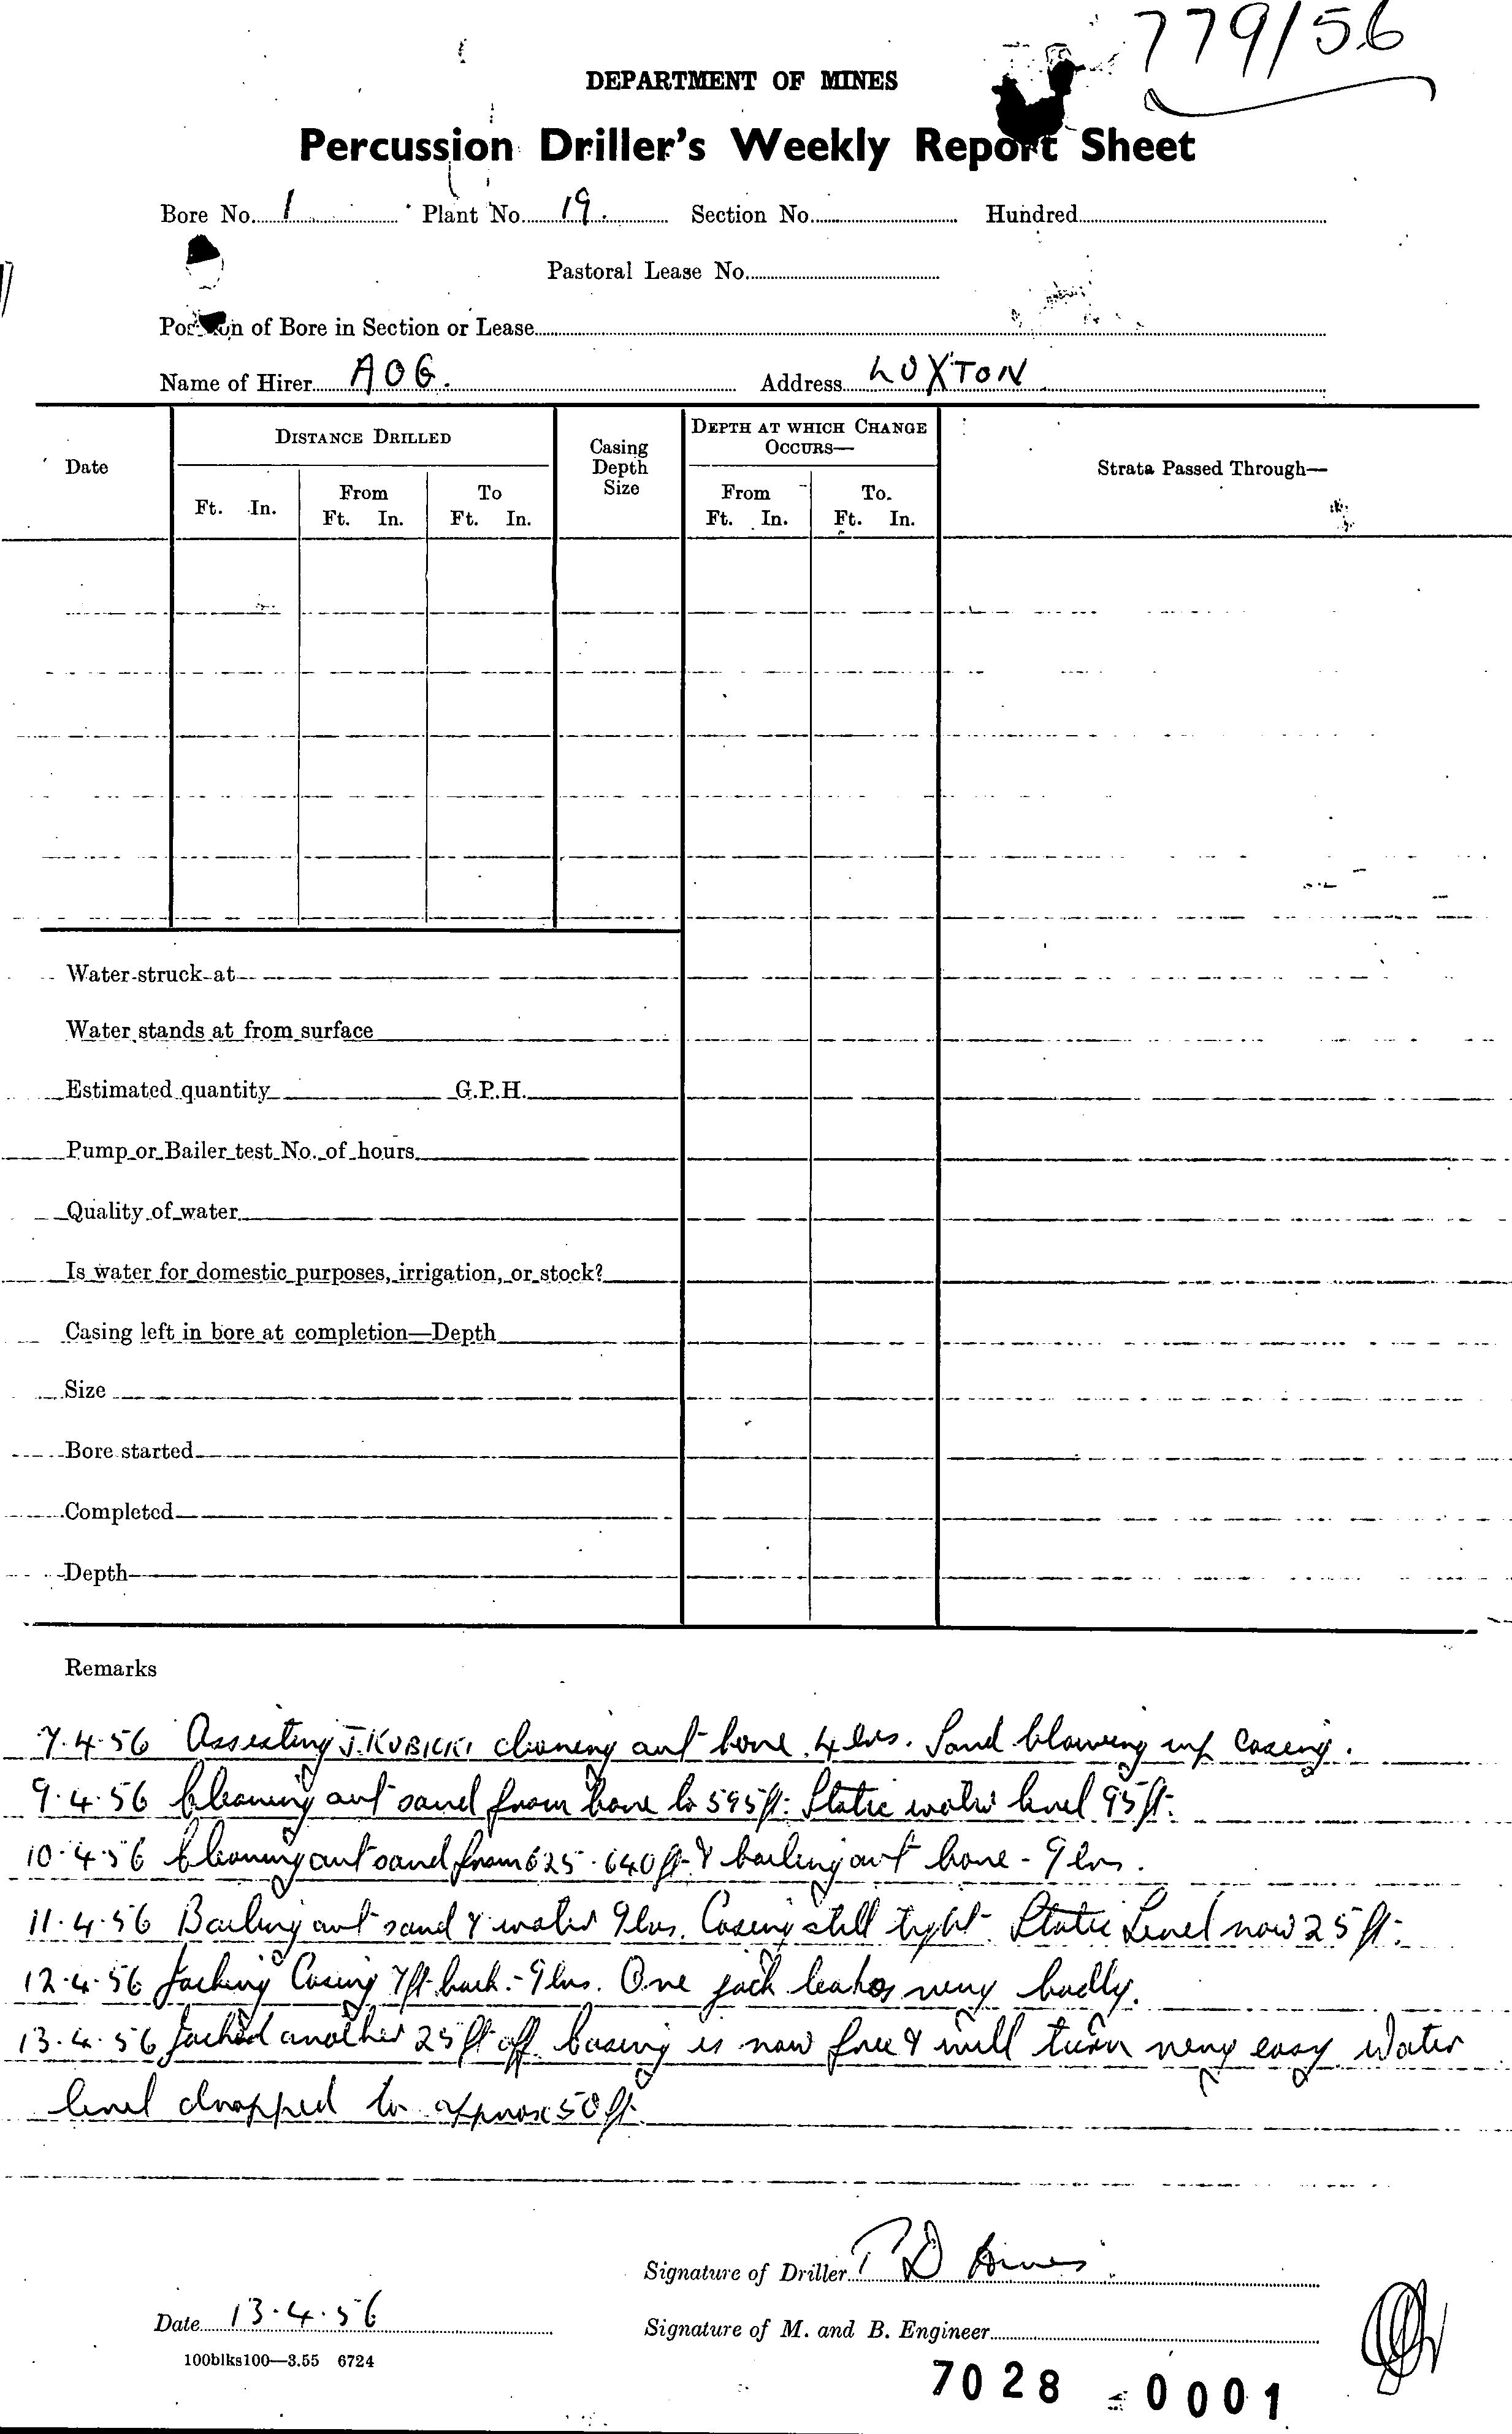 779/56
DEPARTMENT OF MINES
Percussion Driller's Weekly Report Sheet
Bore No. 1 Plant No. 19. Section No. Hundred
Pastoral Lease No.
Position of Bore in Section or Lease
Name of Hirer AOG. Address LOXTON
Date
DISTANCE DRILLED
Ft. In.
From
Ft. In.
To
Ft. In.
Casing
Depth
Size
DEPTH AT WHICH CHANGE
OCCURS—
From
Ft. In.
To.
Ft. In.
Strata Passed Through—
Water struck at
Water stands at from surface
Estimated quantity G.P.H.
Pump or Bailer test No. of hours
Quality of water
Is water for domestic purposes, irrigation, or stock?
Casing left in bore at completion—Depth
Size
Bore started
Completed
Depth
Remarks
7.4.56 Assisting J. KUBICKI cleaning out bore. 4 hrs. Sand blowing up casing.
9.4.56 Cleaning out sand from bore to 595 ft. Static water level 95 ft.
10.4.56 Cleaning out sand from 625-640 ft & bailing out bore - 9 hrs.
11.4.56 Bailing out sand & water 9 hrs. Casing still tight. Static Level now 25 ft.
12.4.56 Jacking Casing 7ft back. - 9 hrs. One jack leakes very badly.
13.4.56 Jacked another 25 ft off. Casing is now free & will turn very easy. Water
level dropped to approx 50 ft.
Signature of Driller
Date 13.4.56
Signature of M. and B. Engineer
100blks100—3.55 6724
7028 0001